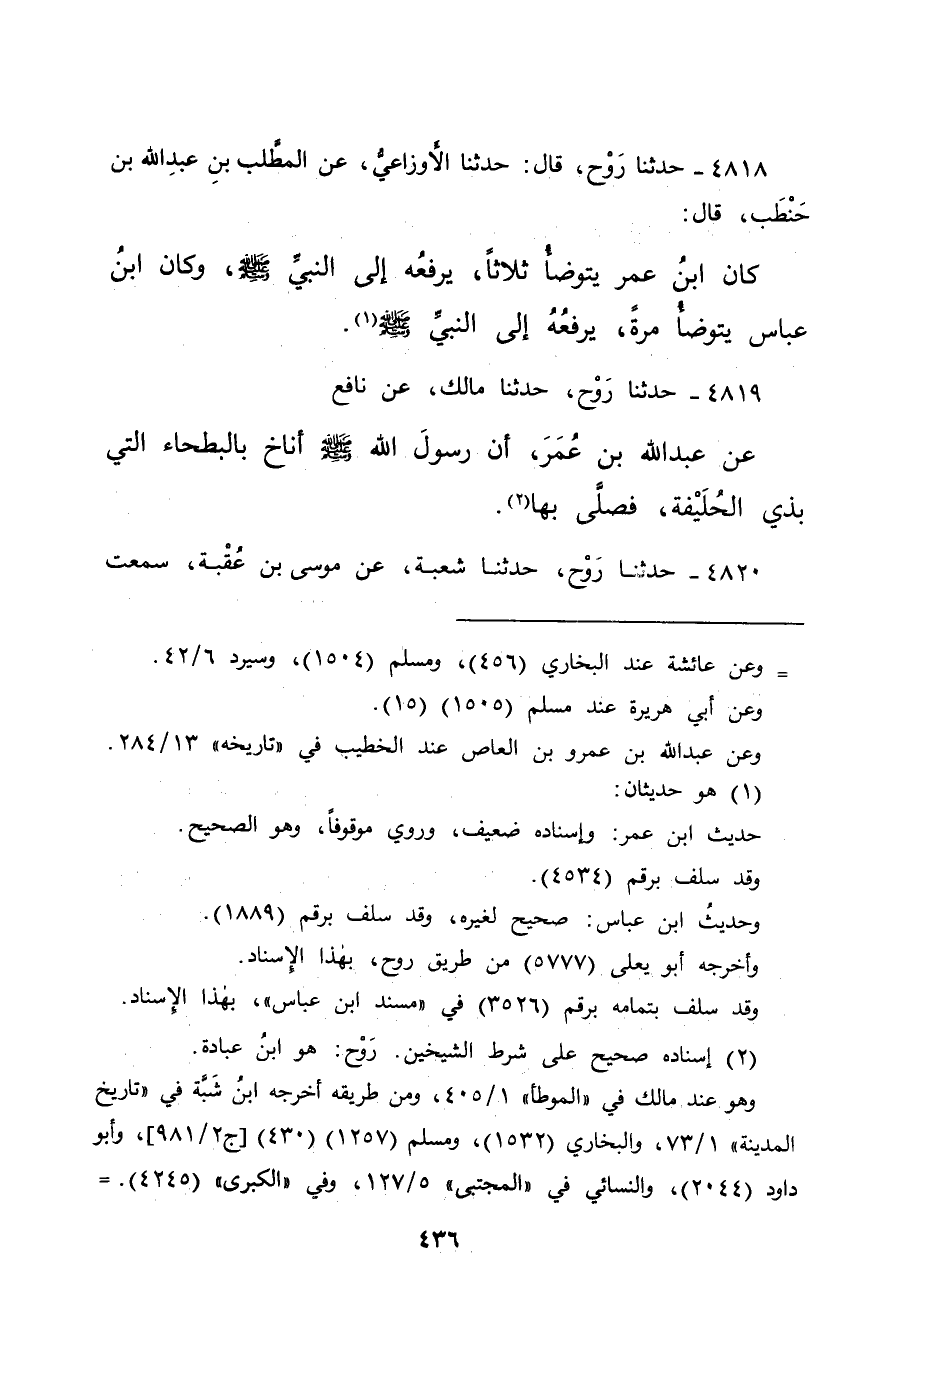 ٤٨١٨ ـ حدثنا رَوْح، قال: حدثنا الأَوزاعيُّ، عن المطَّلب بنِ عبدِالله بن
حَنْطَب، قال:
كان ابنُ عمر يتوضأُ ثلاثاً، يرفعُه إلى النبيِّ ﷺ، وكان ابنُ
عباس يتوضأُ مرةً، يرفعُهُ إلى النبيِّ ﷺ(١).
٤٨١٩ ـ حدثنا رَوْح، حدثنا مالك، عن نافع
عن عبدالله بن عُمَرَ، أن رسولَ الله ﷺ أناخ بالبطحاء التي
بذي الحُلَيْفة، فصلَّى بها(٢).
٤٨٢٠ ـ حدثنا رَوْح، حدثنا شعبة، عن موسى بن عُقْبة، سمعت
= وعن عائشة عند البخاري (٤٥٦)، ومسلم (١٥٠٤)، وسيرد ٤٢/٦.
وعن أبي هريرة عند مسلم (١٥٠٥) (١٥).
وعن عبدالله بن عمرو بن العاص عند الخطيب في «تاريخه» ٢٨٤/١٣.
(١) هو حديثان:
حديث ابن عمر: وإسناده ضعيف، وروي موقوفاً، وهو الصحيح.
وقد سلف برقم (٤٥٣٤).
وحديثُ ابن عباس: صحيح لغيره، وقد سلف برقم (١٨٨٩).
وأخرجه أبو يعلى (٥٧٧٧) من طريق روح، بهٰذا الإِسناد.
وقد سلف بتمامه برقم (٣٥٢٦) في «مسند ابن عباس»، بهٰذا الإِسناد.
(٢) إسناده صحيح على شرط الشيخين. رَوْح: هو ابنُ عبادة.
وهو عند مالك في «الموطأ» ٤٠٥/١، ومن طريقه أخرجه ابنُ شَبَّة في «تاريخ
المدينة» ٧٣/١، والبخاري (١٥٣٢)، ومسلم (١٢٥٧) (٤٣٠) [ج٩٨١/٢]، وأبو
داود (٢٠٤٤)، والنسائي في «المجتبى» ١٢٧/٥، وفي «الكبرى» (٤٢٤٥). =
٤٣٦